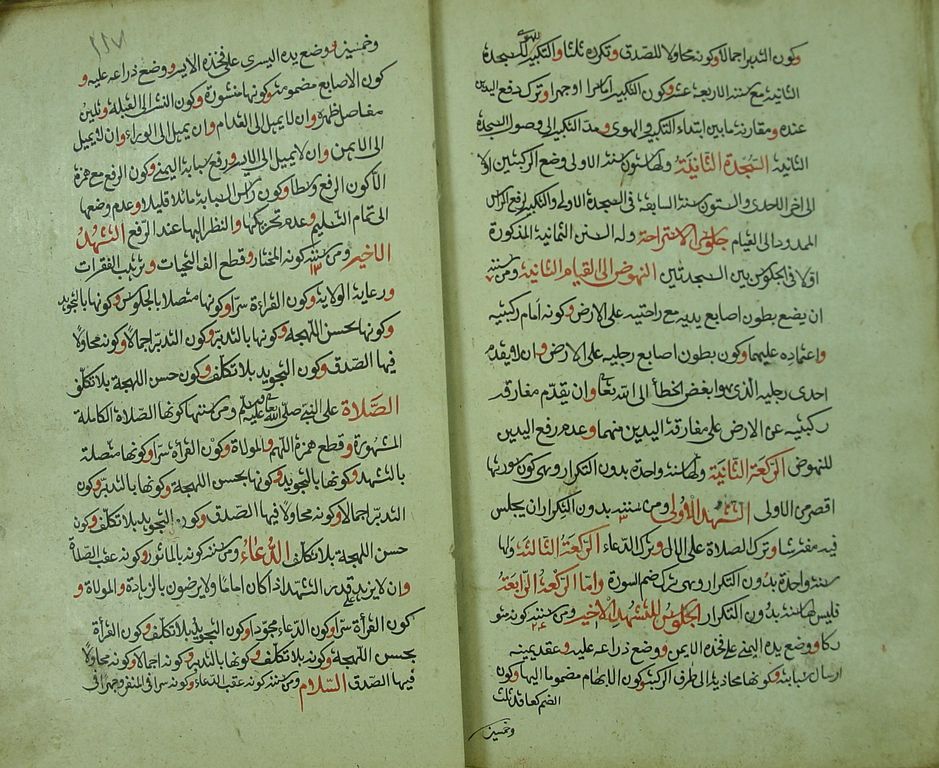 وكون التدبر اجمالا وكونه محاولا للصدق وتكرره ثلثا والتكبير للسجدة
الثانية مع سننه الاربعة عشر وكون التكبير اماما او جهرا وترك رفع اليدين
عنده ومقارنة ما بين ابتداء التكبير والهوي ومد التكبير الى وصول السجدة
الثانية السجدة الثانية ولها ستون سنة الاولى وضع الركبتين اولا
الى اخر الاحدى والستون سنة السابقة فى السجدة الاولى والتكبير لرفع الراس
الممدود الى القيام جلوس الاستراحة وله السنن الثمانية المذكورة
اولا فى الجلوس بين السجدتين النهوض الى القيام الثانية ومن سننه
ان يضع بطون اصابع يديه مع راحتيه على الارض وكونه أمام ركبتيه
واعتماده عليهما وكون بطون اصابع رجليه على الارض وان لا يقدم
احدى رجليه الذى هو ابغض الخطأ الى الله تعالى وان يقدم مفارقة
ركبتيه عن الارض على مفارقة اليدين منهما وعدم رفع اليدين
للنهوض الركعة الثانية ولها سنة واحدة بدون التكرار وهى كون سورتها
اقصر من الاولى التشهد الاولى ومن سننه بدون التكرار ان يجلس
فيه مفترشا وترك الصلاة على الال وترك الدعاء الركعة الثالثة ولها
سنة واحدة بدون التكرار وهى ترك ضم السورة واما الركعة الرابعة
فليس لها سنة بدون التكرار الجلوس للتشهد الاخير ومن سننه كونه متو
ركا ووضع يده اليمنى على فخذه الايمن ووضع ذراعه عليه وعقد يمينه
ارسال سبابته وكونها محاذية الى طرف الركبة وكون الابهام مضموما اليها وكون
الضم كعاقد ثلث
وخمسين
وخمسين ووضع يده اليسرى على فخذه الايسر ووضع ذراعه عليه و
كون الاصابع مضمومة وكونها منشورة وكون النشر الى القبلة وتليين
مفاصل ظهره وان لا يميل الى القدام وان يميل الى الوراء وان لا يميل
الى الايمن وان لا يميل الى الايسر ورفع سبابة اليمنى وكون الرفع مع همزة
الا وكون الرفع وسطا وكون راس السبابة مائلا قليلا وعدم وضعها
الى تمام التسليم وعدم تحريكها والنظر اليها عند الرفع التشهد
الاخير ومن سننه كونه المختار وقطع الف التحيات وترتيب الفقرات
ورعاية الولاية وكون القراءة سرا وكونها متصلا بالجلوس وكونها بالتجويد
وكونها بحسن اللهجة وكونها بالتدبر وكون التدبر اجمالا وكونه محاولا
فيها الصدق وكون التجويد بلا تكلف وكون حسن اللهجة بلا تكلف
الصلاة على النبي صلى الله تعالى عليه وسلم ومن سننها كونها الصلاة الكاملة
المشهورة وقطع همزة اللهم والموالاة وكون القرأة سرا وكونها متصلة
بالتشهد وكونها بالتجويد وكونها بحسن اللهجة وكونها بالتدبر وكون
التدبر اجمالا وكونه محاولا فيها الصدق وكون التجويد بلا تكلف وكون
حسن اللهجة بلا تكلف الدعاء ومن سننه كونه بالمأثور وكونه عقب الصلاة
وان لا يزيد على قدر التشهد اذا كان اماما ولا يرضون بالزيادة والموالاة و
كون القرأة سرا وكون الدعاء مجودا وكون التجويد بلا تكلف وكون القرأة
بحسن اللهجة وكونه بلا تكلف وكونها بالتدبر وكونه اجمالا وكونه محاولا
فيها الصدق السلام ومن سننه كونه عقب الدعاء وكونه سرا فى المنفرد وجهرا فى